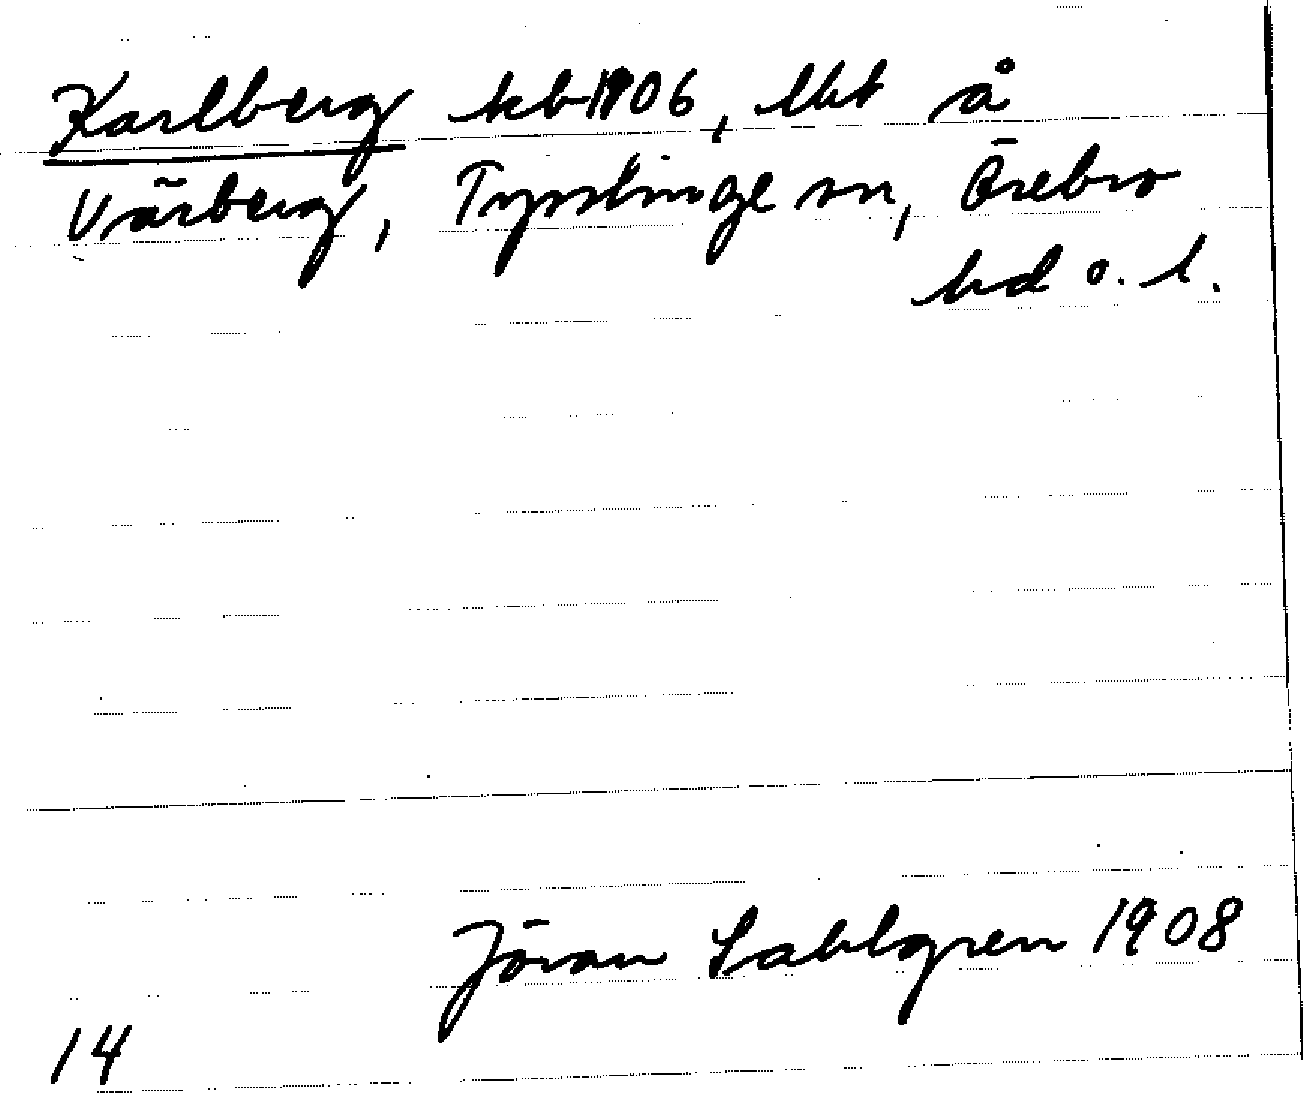 Karlberg kb 1906, lht å
Vårberg, Tysslinge sn, Örebro
hd o. l.
Jöran Sahlgren 1908
14